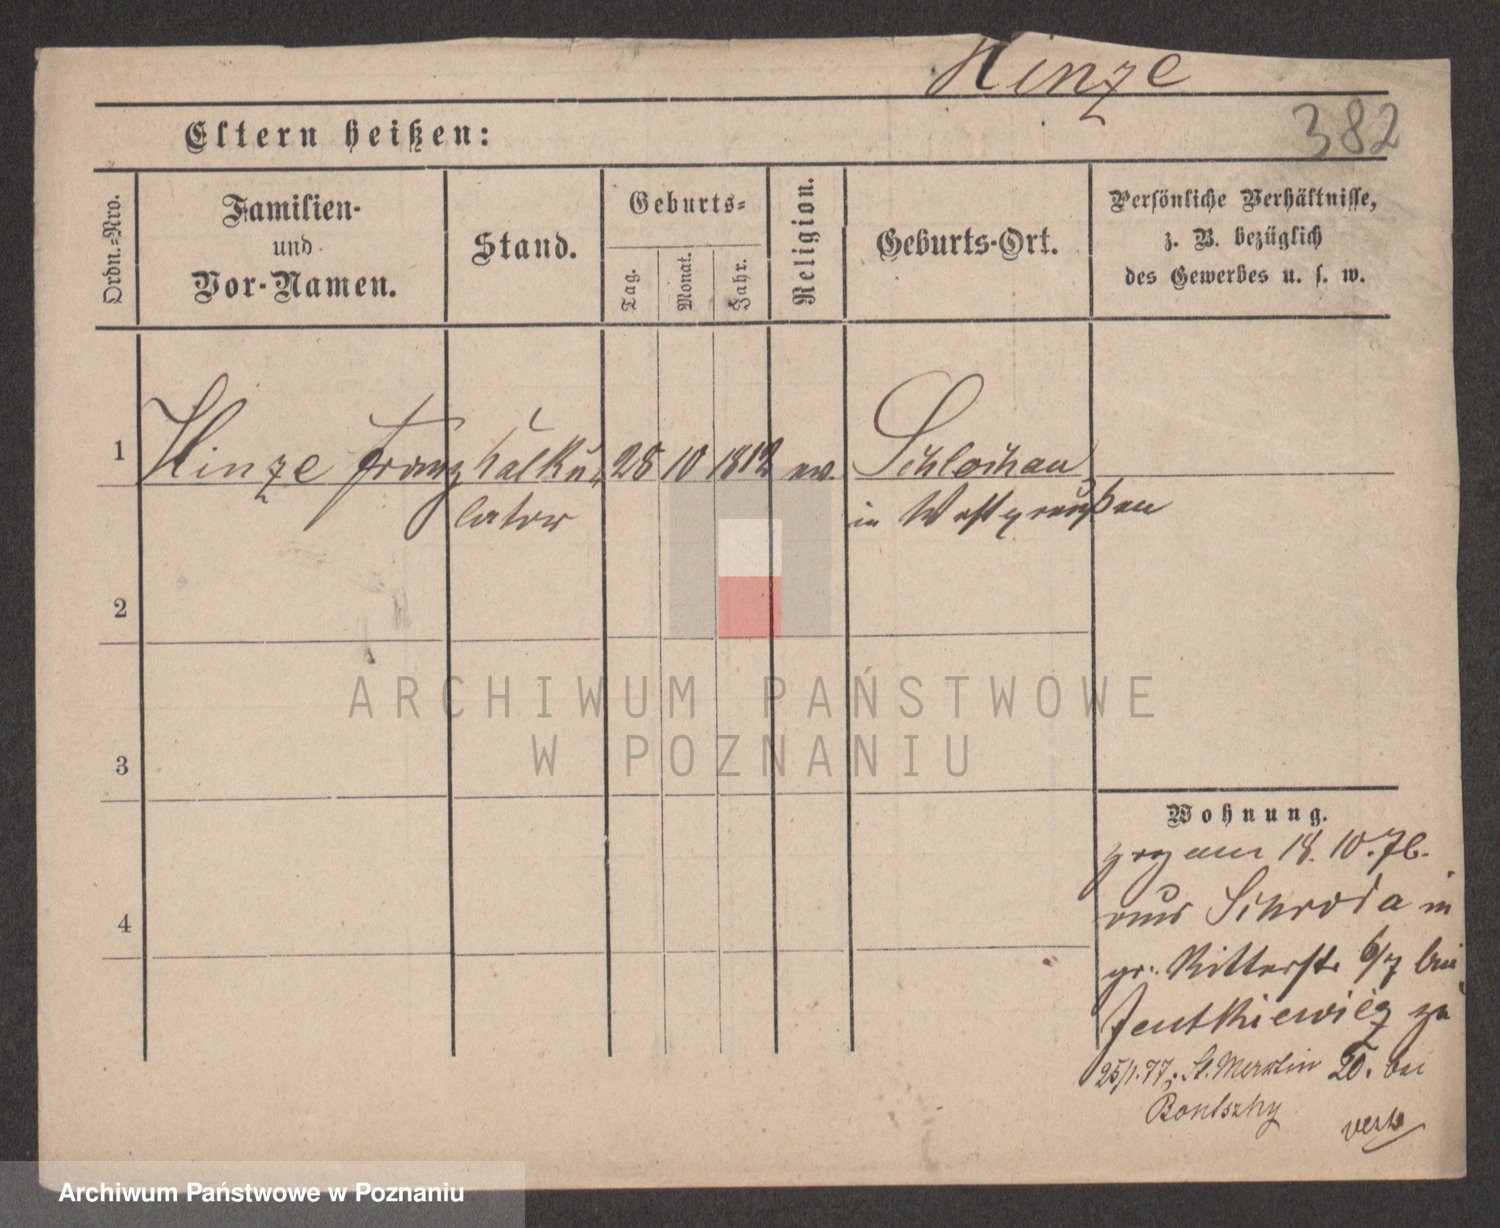 Hinze
382
Eltern heißen:
Ordn.-Nro.
Familien-
und
Vor-Namen.
Stand.
Geburts-
Tag.
Monat.
Jahr.
Religion.
Geburts-Ort.
Persönliche Verhältnisse,
z. B. bezüglich
des Gewerbes u. s. w.
1 Hinze Franz Kalku- 28 10 1812 ev. Schlochau
lator in Westpreußen
2
3
4
ARCHIWUM PAŃSTWOWE
W POZNANIU
Wohnung.
18. 10. 76.
aus Schroda in
gr. Ritterstr. 6/7 bei
Jentkiewicz zu
25/1.77. St. Martin 20. bei
Archiwum Państwowe w Poznaniu